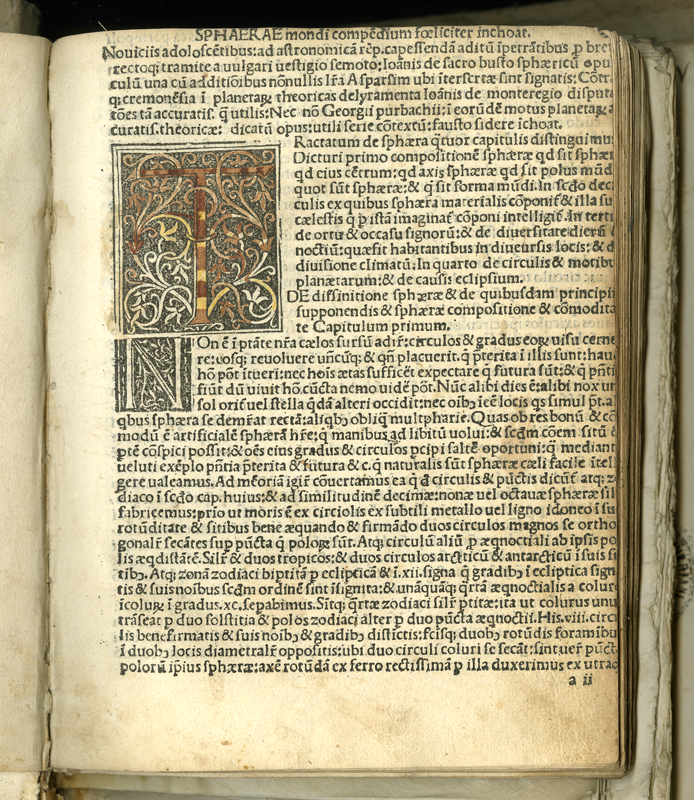 SPHAERAE mondi compēdium fœliciter inchoat.
Nouiciis adolescētibus: ad astronomicā rēp. capessendā aditū īpetrātibus p bre
rectoq; tramite a uulgari uestigio semoto; Ioānis de sacro busto sphæricū opu
culū una cū additiōibus nōnullis lr̄a A sparsim ubi īterserte sint signatis: Cōtr
q; cremonēsia ī planetaꝝ theoricas delyramenta Ioānis de monteregio disputa
tōes tā accuratiss. q̄ utilis: Nec nō Georgii purbachii: ī eorūdē motus planetaꝝ a
curatiss. theoricæ: dicatū opus: utili serie cōtextū: fausto sidere īchoat.
TRactatum de sphæra q̄tuor capitulis distingui mu
Dicturi primo compositionē sphæræ qd sit sphær
qd eius cētrum: qd axis sphæræ qd sit polus mūd
quot sūt sphæræ: & q̄ sit forma mūdi. In scdo dec
culis ex quibus sphæra materialis cōponit & illa su
cælestis q̄ p istā imaginat cōponi intelligit. In tert
de ortu & occasu signorū: & de diuersitate dierū
noctiū: quæ fit habitantibus in diuersis locis: & d
diuisione climatū. In quarto de circulis & motib
planetarum: & de causis eclipsium.
DE diffinitione sphæræ & de quibusdam principi
supponendis & sphæræ compositione & cōmodita
te Capitulum primum.
NOn ē ī ptāte nr̄a cælos sursū ad ir̄: circulos & gradus eoꝝ uisu cerne
re: eosq; reuoluere uncūq; & qn̄ placuerit. q̄ pterita ī illis sunt: hau
hō pōt ītueri: nec hois ætas sufficēt expectare q̄ futura sūt: & q̄ pn̄ti
fiūt dū uiuit hō. cūcta nemo uidē pōt. Nūc alibi dies ē: alibi nox ur
sol orit uel stella q̄dā alteri occidit: nec oibꝫ ieē locis qs simul pt. a
qbus sphæra se demr̄at rectā: aliqbꝫ obliq̄ multipharie. Quas ob res bonū & cō
modū ē artificialē sphærā hr̄e: q̄ manibus ad libitū uolui: & scdm cōem sitū
ptē cōspici possit: & oēs eius gradus & circulos pcipi saltē oportuni: q̄ mediant
ueluti exēplo pn̄tia pterita & futura & c. q̄ naturalis sūt sphæræ cæli facile ītel
gere ualeamus. Ad mēoriā igir̄ couertamus ea q̄ d circulis & pūctis dicūt atq; z
diaco ī scdo cap. huius: & ad similitudinē decimæ: nonæ uel octauæ sphæræ sil
fabricemus: prio ut moris ē ex circiolis ex subtili metallo uel ligno idoneo ī su
rotūditate & sitibus bene æquando & firmādo duos circulos magnos se ortho
gonalr̄ secātes sup pūcta q̄ poloꝝ sūt. Atq; circulū aliū p æqnoctiali ab ipsis po
lis æqdistātē. Silr̄ & duos tropicos: & duos arcticū & antarcticū ī suis si
tibꝫ. Atq; zonā zodiaci biptitā p eclipticā & ī. xii. signa q̄ gradibꝫ ī ecliptica sign
tis & suis noibus scdm ordinē sint īsignita: & unāquāq; q̄rtā æqnoctialis a colur
ī coluꝝ ī gradus. xc. sepabimus. Sitq; q̄rtæ zodiaci silr̄ ptitæ: ita ut colurus unu
trāseat p duo solstitia & polos zodiaci alter p duo pūcta æqnoctii. His. viii. circ
lis bene firmatis & suis noibꝫ & gradibꝫ distictis: fcisq; duobꝫ rotūdis foramibu
ī duobꝫ locis diametralr̄ oppositis: ubi duo circuli coluri se secāt: sint uer̄ pūct
polorū ipius sphæræ: axē rotūdā ex ferro rectissimā p illa duxerimus ex utrac
a ii